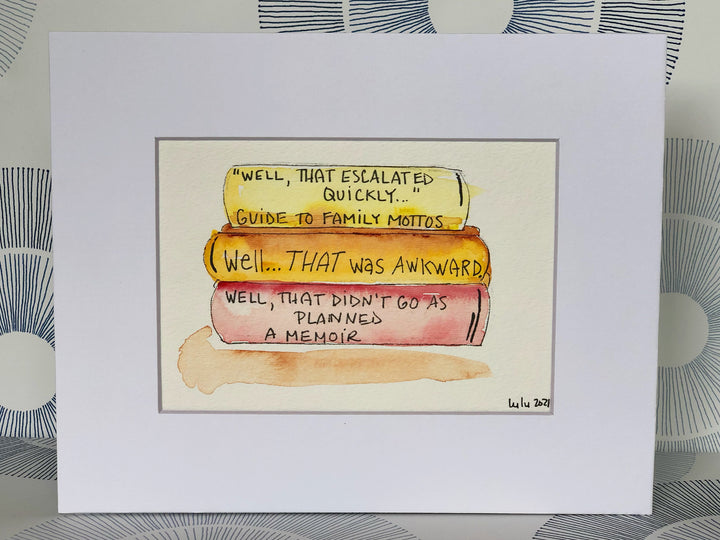 "WELL, THAT ESCALATED
QUICKLY..."
GUIDE TO FAMILY MOTTOS
Well... THAT was AWKWARD.
WELL, THAT DIDN'T GO AS
PLANNED
A MEMOIR
Lulu 2021